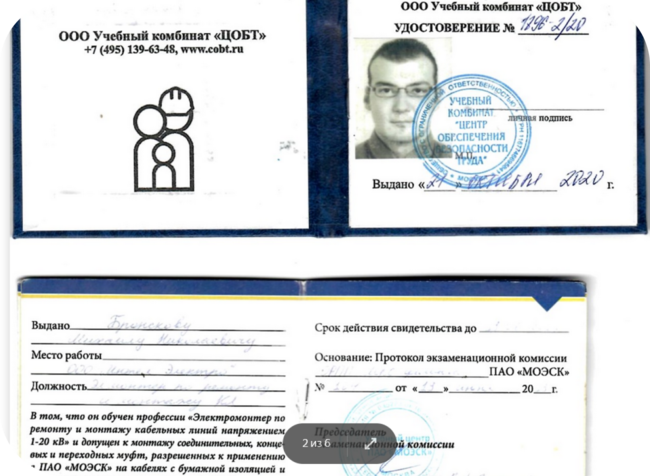 ООО Учебный комбинат «ЦОБТ»
+7 (495) 139-63-48, www.cobt.ru
ООО Учебный комбинат «ЦОБТ»
УДОСТОВЕРЕНИЕ № 1896-2/20
УЧЕБНЫЙ
КОМБИНАТ
"ЦЕНТР
ОБЕСПЕЧЕНИЯ
БЕЗОПАСНОСТИ
ТРУДА"
личная подпись
М.П.
Выдано «21» октября 2020 г.
Выдано
Михаилу Николаевичу
Место работы
ООО
Должность
В том, что он обучен профессии «Электромонтер по
ремонту и монтажу кабельных линий напряжением
1-20 кВ» и допущен к монтажу соединительных, конце-
вых и переходных муфт, разрешенных к применению
ПАО «МОЭСК» на кабелях с бумажной изоляцией и
Срок действия свидетельства до
Основание: Протокол экзаменационной комиссии
ПАО «МОЭСК»
№ от « » 20 г.
Председатель
экзаменационной комиссии
2 из 6